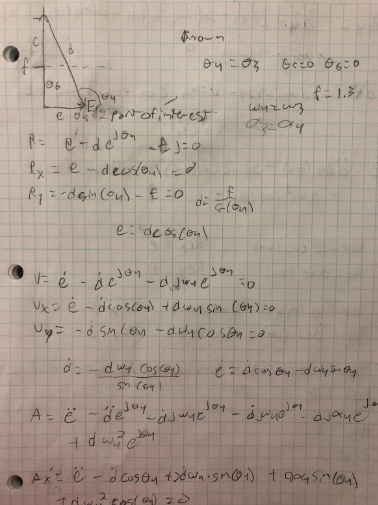 θ4 = θ3 θ5=0 θ6=0
f = 1.3
c
d
f
θ6
θ4
ω4=ω3
e θ5 E = point of interest
α3=α4
R = e - de^jθ4 - fj=0
Rx = e - dcos(θ4) =0
Ry = -dsin(θ4) - f =0 d= -f/sin(θ4)
e = dcos(θ4)
V= ė - ḋe^jθ4 - djω4e^jθ4 =0
Vx = ė - ḋcos(θ4) + dω4 sin(θ4)=0
Vy = -ḋ sinθ4 - dω4cosθ4 =0
ḋ = -dω4 cos(θ4)/sin(θ4) ė = ḋcosθ4 - dω4sinθ4
A = ë - d̈e^jθ4 - ḋjω4e^jθ4 - ḋjω4e^jθ4 - djα4e^jθ
+ dω4²e^jθ4
Ax = ë - d̈cosθ4 + 2ḋω4·sin(θ4) + dα4sin(θ4)
+ dω4²cos(θ4) =0